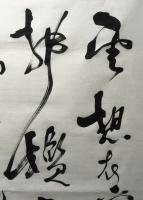 雲想衣
拂檻